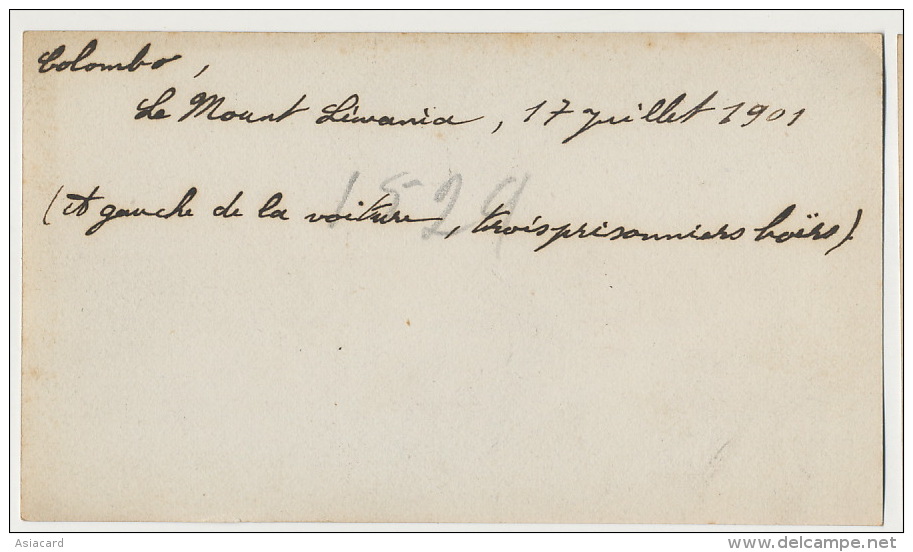 Colombo,
Le Mount Liwania, 17 juillet 1901
1529
(A gauche de la voiture, trois prisonniers boërs)
Asiacard
www.delcampe.net